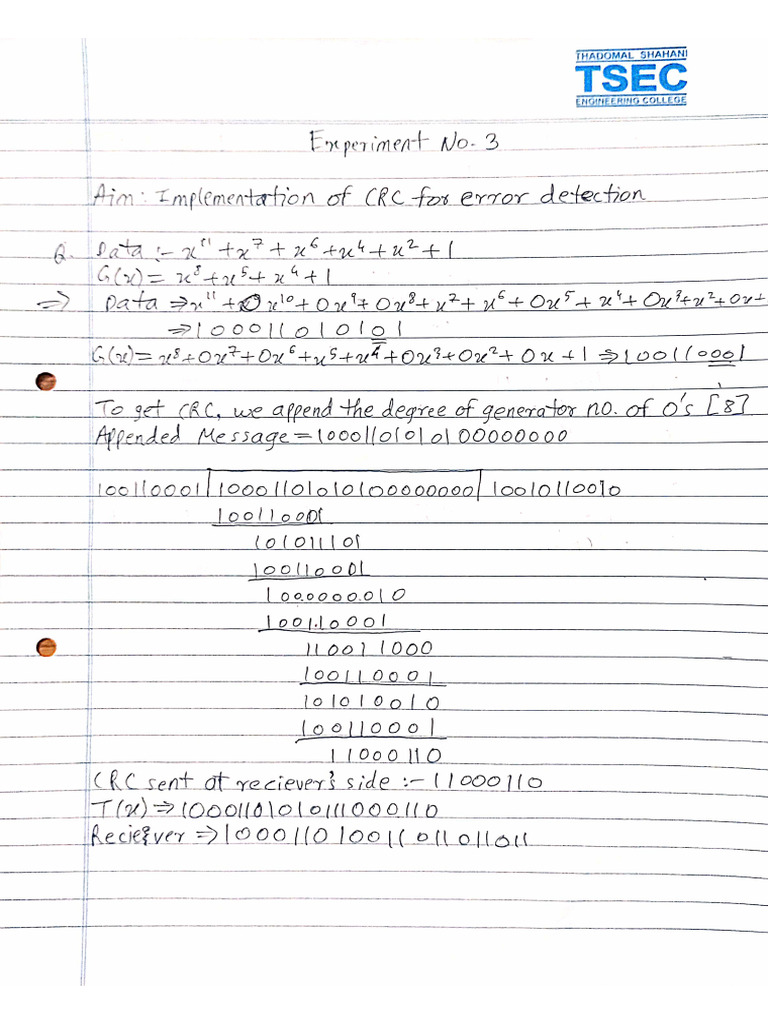 THADOMAL SHAHANI
TSEC
ENGINEERING COLLEGE
Experiment No. 3
Aim: Implementation of CRC for error detection
Q. Data :- x¹¹ + x⁷ + x⁶ + x⁴ + x² + 1
G(x) = x⁸ + x⁵ + x⁴ + 1
=> Data => x¹¹ + 0x¹⁰ + 0x⁹ + 0x⁸ + x⁷ + x⁶ + 0x⁵ + x⁴ + 0x³ + x² + 0x +
=> 100011010101
G(x) = x⁸ + 0x⁷ + 0x⁶ + x⁵ + x⁴ + 0x³ + 0x² + 0x + 1 => 100110001
To get CRC, we append the degree of generator no. of 0's [8]
Appended Message = 10001101010100000000
100110001 | 10001101010100000000 | 10010110010
100110001
101011101
100110001
1000000010
100110001
110011000
100110001
101010010
100110001
11000110
CRC sent at reciever's side :- 11000110
T(x) => 10001101010111000110
Reciever => 10001101001101101101